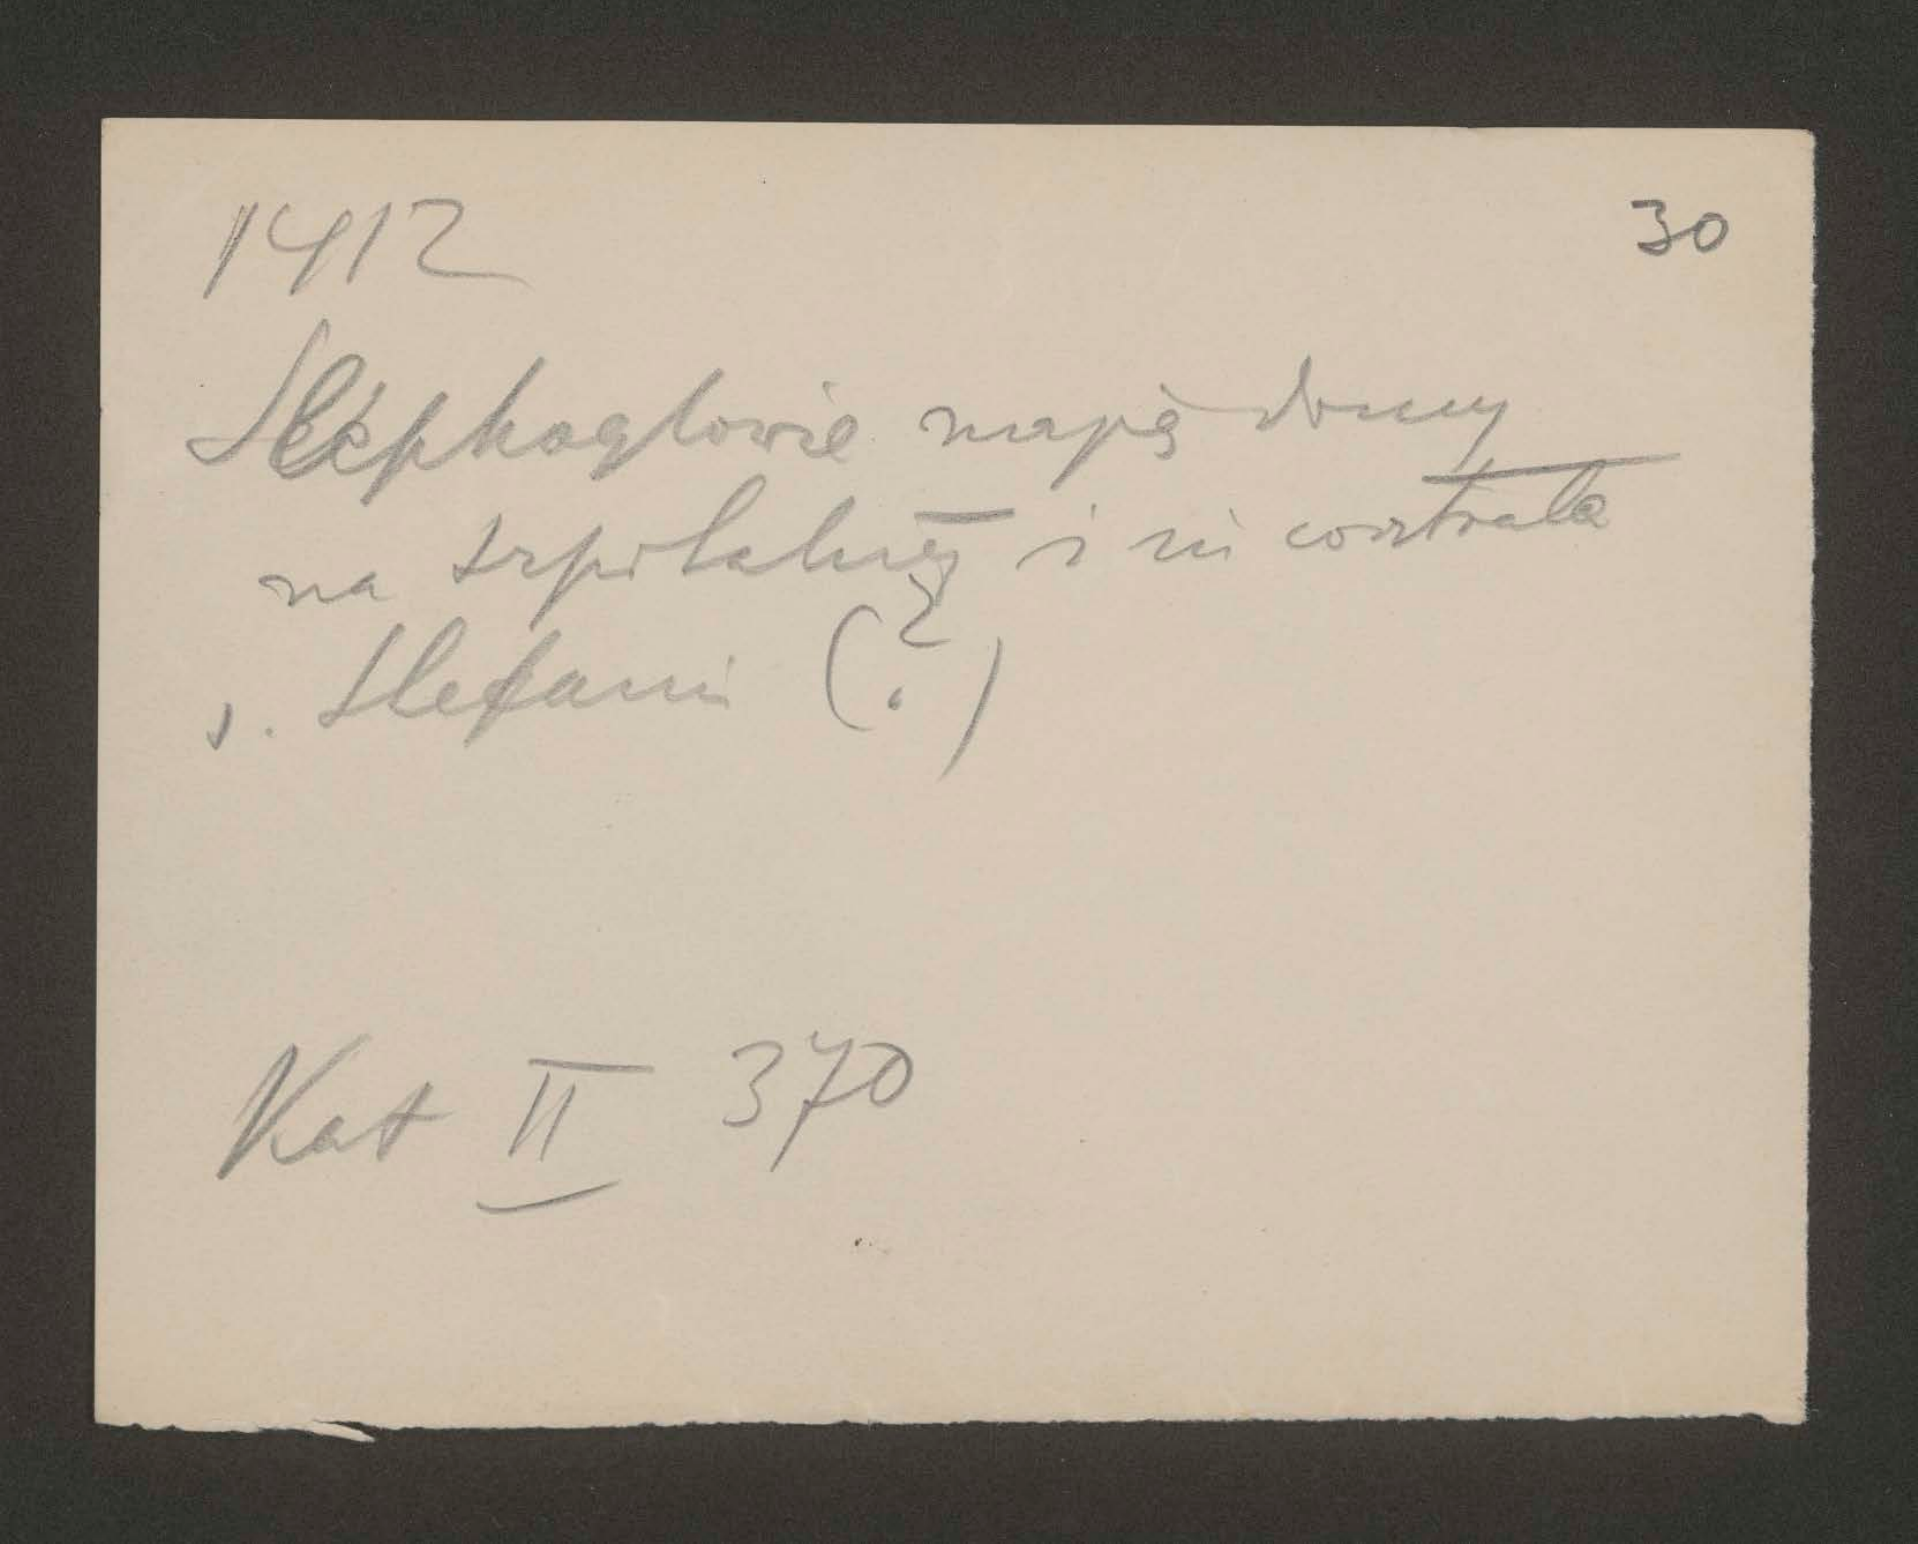 1412
30
Stephoglowie mają domy
na szpitalnej i in contrata
s. Stefani (?)
Kat II 370